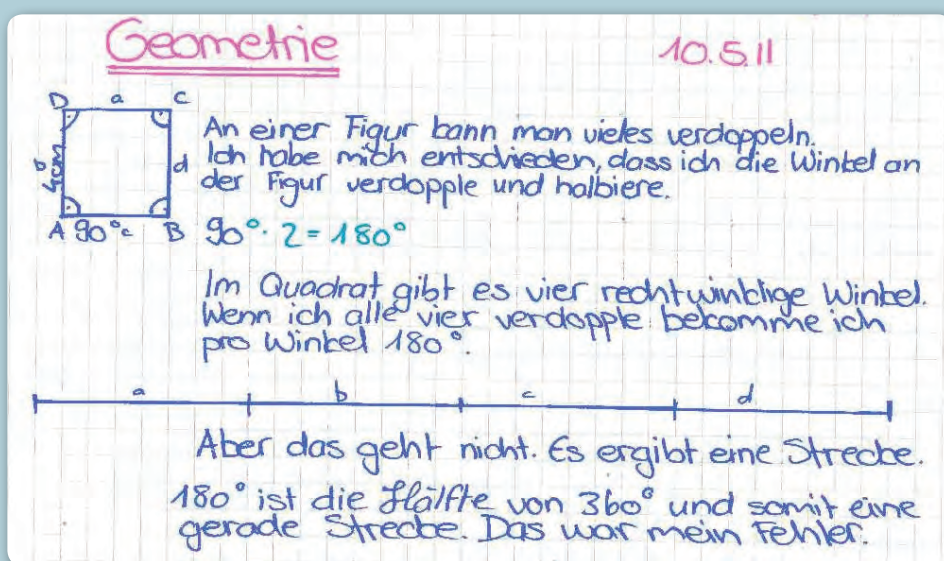 Geometrie 10.5.11
D a C
b 4cm d
A 90° c B
An einer Figur kann man vieles verdoppeln.
Ich habe mich entschieden, dass ich die Winkel an
der Figur verdopple und halbiere.
90° · 2 = 180°
Im Quadrat gibt es vier rechtwinklige Winkel.
Wenn ich alle vier verdopple bekomme ich
pro Winkel 180°.
a b c d
Aber das geht nicht. Es ergibt eine Strecke.
180° ist die Hälfte von 360° und somit eine
gerade Strecke. Das war mein Fehler.